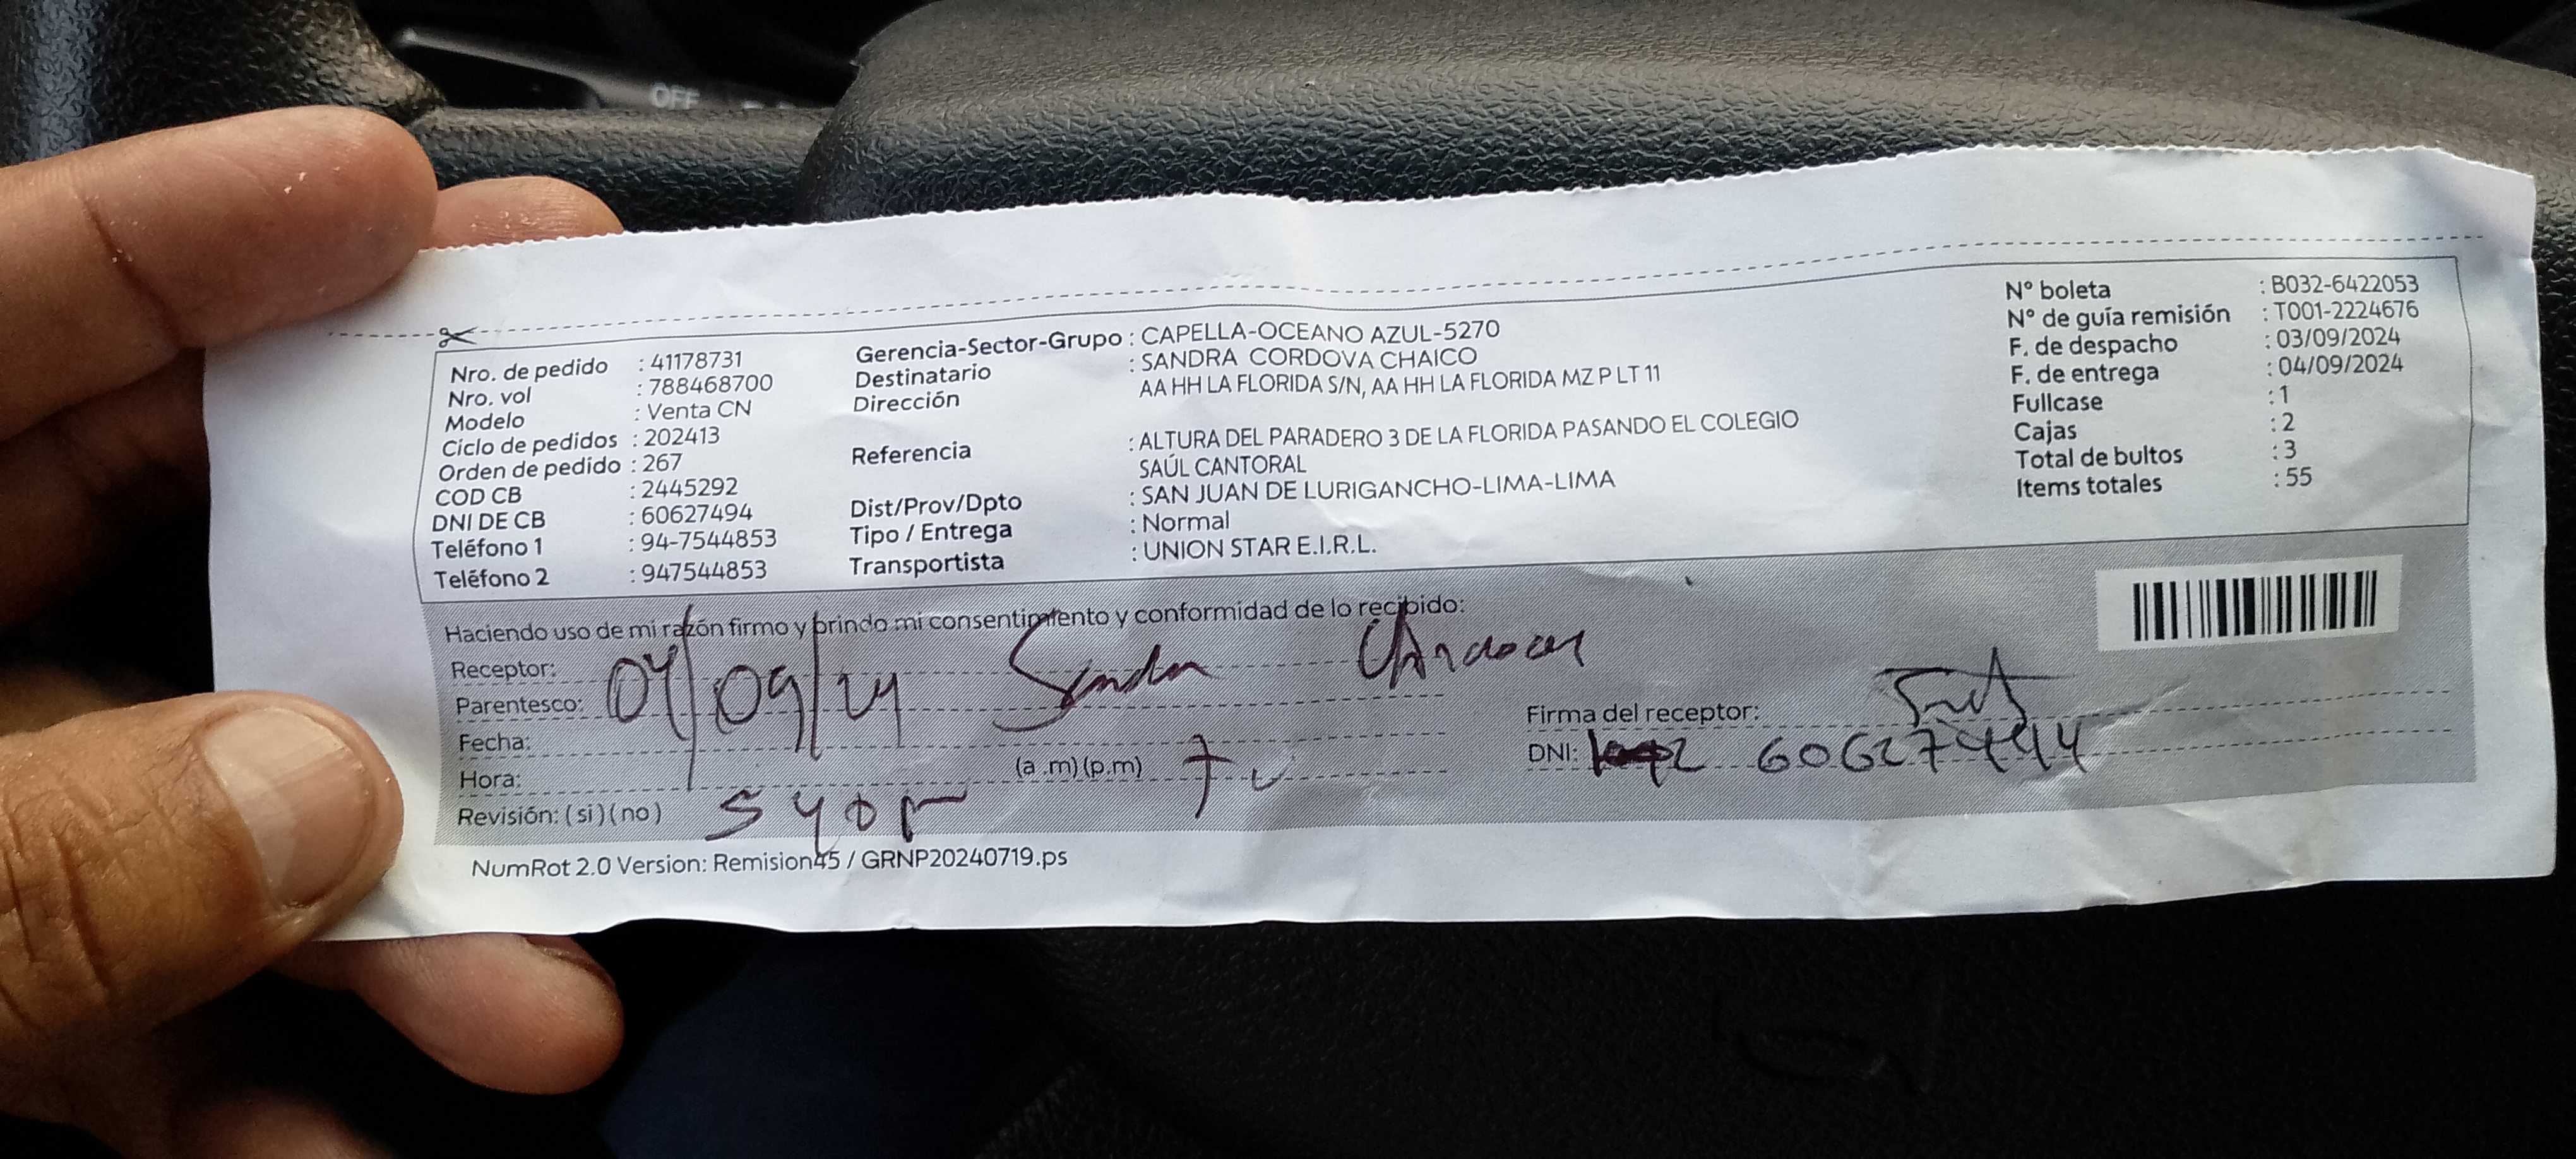 OFF
Nro. de pedido : 41178731
Nro. vol : 788468700
Modelo : Venta CN
Ciclo de pedidos : 202413
Orden de pedido : 267
COD CB : 2445292
DNI DE CB : 60627494
Teléfono 1 : 94-7544853
Teléfono 2 : 947544853
Gerencia-Sector-Grupo : CAPELLA-OCEANO AZUL-5270
Destinatario : SANDRA CORDOVA CHAICO
Dirección AA HH LA FLORIDA S/N, AA HH LA FLORIDA MZ P LT 11
Referencia : ALTURA DEL PARADERO 3 DE LA FLORIDA PASANDO EL COLEGIO
SAÚL CANTORAL
Dist/Prov/Dpto : SAN JUAN DE LURIGANCHO-LIMA-LIMA
Tipo / Entrega : Normal
Transportista : UNION STAR E.I.R.L.
N° boleta : B032-6422053
N° de guía remisión : T001-2224676
F. de despacho : 03/09/2024
F. de entrega : 04/09/2024
Fullcase : 1
Cajas : 2
Total de bultos : 3
Items totales : 55
Haciendo uso de mi razón firmo y brindo mi consentimiento y conformidad de lo recibido:
Receptor:
Parentesco: 04/09/24
Fecha:
Hora: (a .m) (p.m)
Revisión: (si) (no)
Firma del receptor:
DNI: 60627494
NumRot 2.0 Version: Remision45 / GRNP20240719.ps